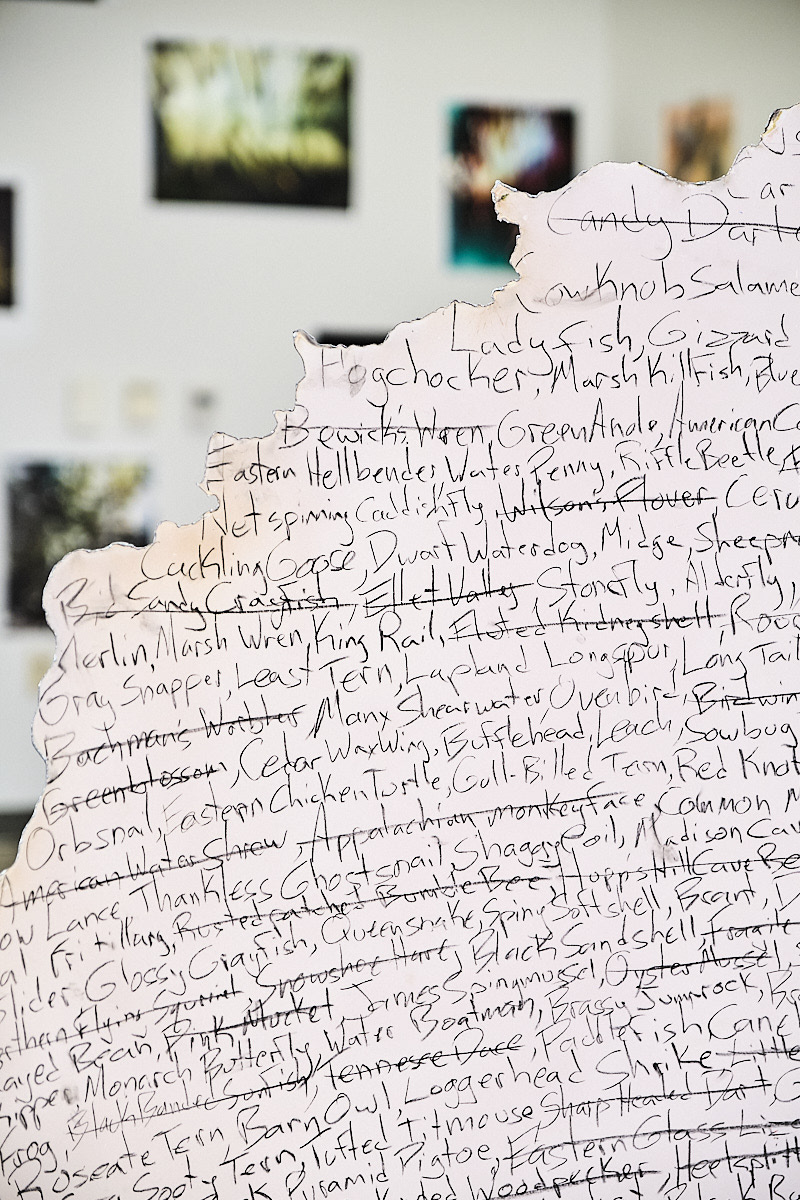 Candy Darte
owknob Salame
Ladyfish, Gizzard
Hogchocker, Marsh Killfish, Blue
Bewick's Wren, Green Anole, American Co
Eastern Hellbender Water Penny, Riffle Beetle,
Netspinning Caddishfly, Wilson's Plover, Ceru
Cackling Goose, Dwarf Waterdog, Midge, Sheepn
Big Sandy Crayfish, Ellet Valley Stonefly, Alderfly,
Merlin, Marsh Wren, King Rail, Fluted Kidneyshell, Roo
Gray Snapper, Least Tern, Lapland Longspur, Long Tail
Bachman's Warbler Manx Shearwater, Ovenbird, Birdwin
Greenblossom, Cedar WaxWing, Bufflehead, Leach, Sowbug
Orbsnal, Eastern Chicken Turtle, Gull-Billed Tern, Red Knot
American Water Shrew, Appalachian monkeyface Common M
ow Lance Thankless Ghostsnail, Shaggy Coil, Madison Cav
al Fritillary, Rusted patched Bumble Bee, Hupp's Hill Cave Be
lider Glossy Crayfish, Queensnake, Spiny Softshell, Brant, D
rthern Flying Squirrel Snowshoe Hart, Black Sandshell, fragile
ayed Bean, Pink Mucket, James Spinymussel, Oyster Mussel,
kipper Monarch Butterfly Water Boatman, Brassy Jumprock,
Frog, Black Banded Sunfish, Tennesee Dace, Paddlefish Cane
Roseate Tern, Barn Owl, Loggerhead Shrike, Little
Sooty Tern, Tufted Titmouse, Sharp Headed Dart,
Pyramid Pigtoe, Eastern Glass Liz
Woodpecker, Heelsplitt